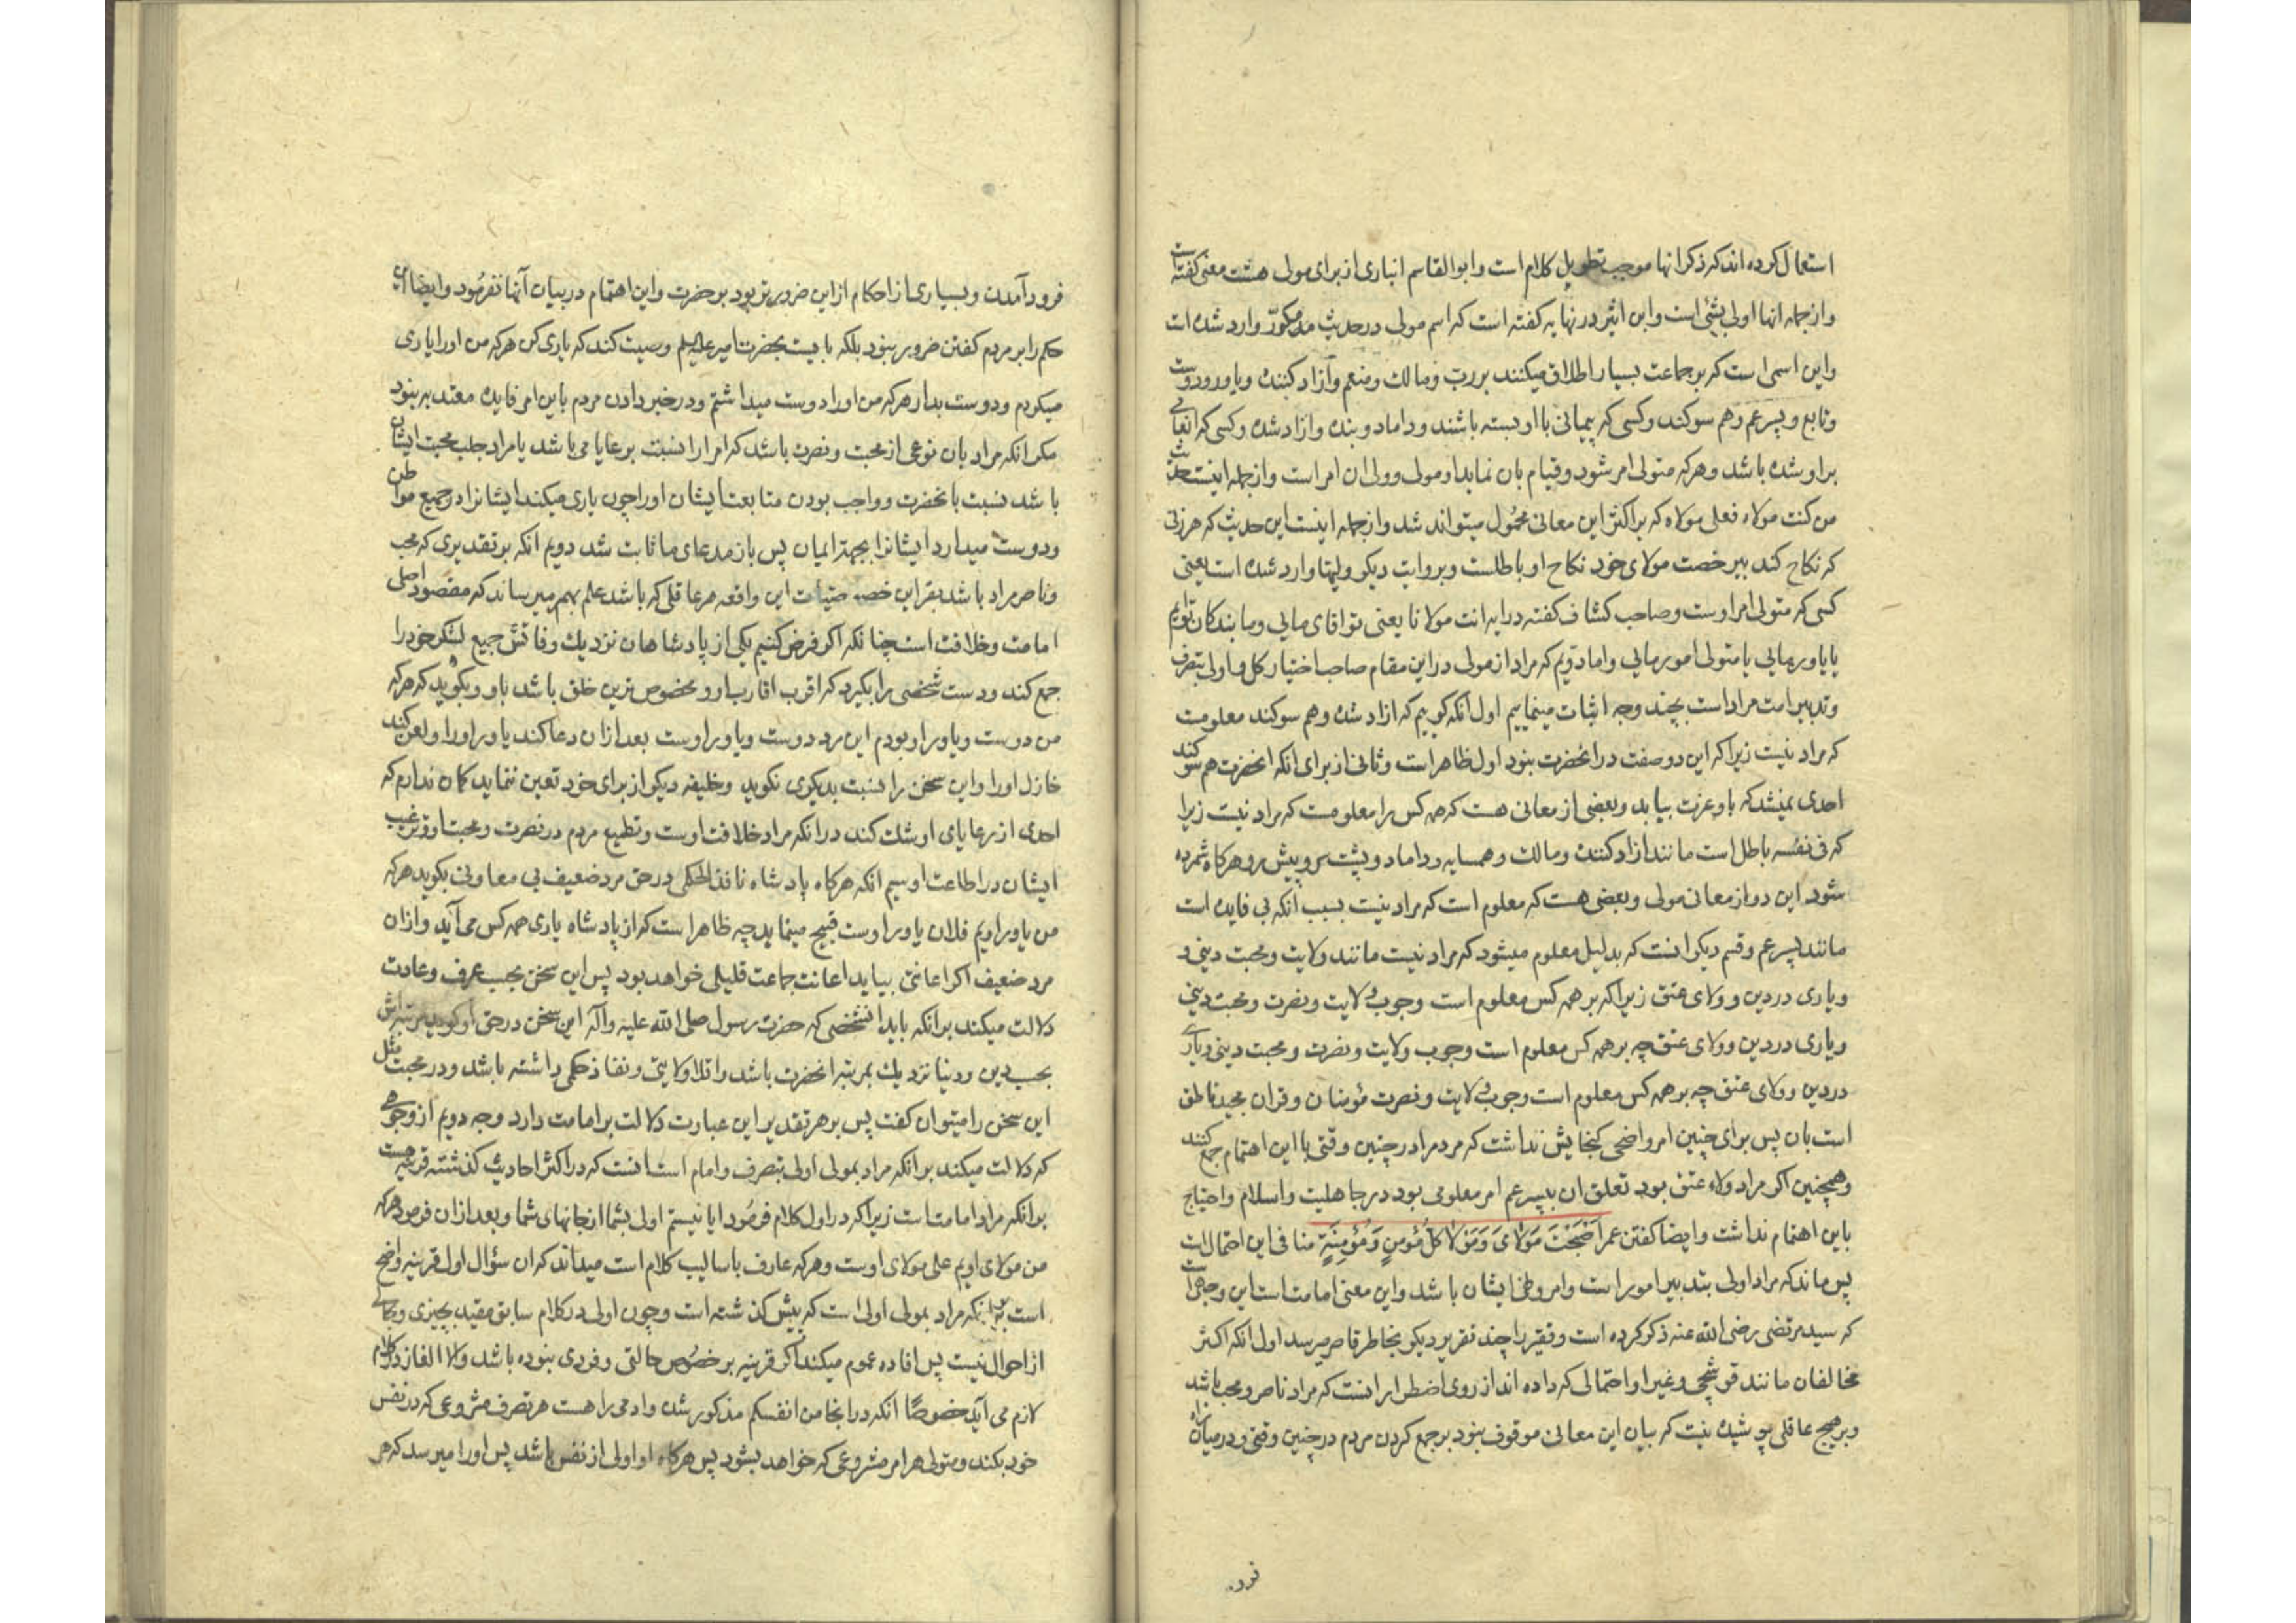 استعمال کرده اند که ذکر انها موجب تطویل کلام است و ابو القاسم انباری از برای مولی هشت معنی گفته است
و از جمله انها اولی بشئی است و ابن اثیر در نهایه گفته است که اسم مولی در حدیث مذکور وارد شده است
و این اسمی است که بر جماعت بسیار اطلاق میکنند بر رب و مالک و منعم و آزاد کننده و یاور و دوست
و تابع و پسر عم و هم سوکند و کسی که پیمانی با او بسته باشند و داماد و بنده و ازاد شده و کسی که انعامی
بر او شده باشد و هر که متولی امر شود و قیام بان نماید او مولی و ولی ان امر است و از جمله اینست حدیث
من کنت مولاه فعلی مولاه که بر اکثر این معانی محمول میتواند شد و از جمله اینست این حدیث که هر زنی
که نکاح کند بیرخصت مولای خود نکاح او باطلست و بروایت دیکر ولیها وارد شده است یعنی
کسی که متولی امر اوست و صاحب کشاف گفته در ایه انت مولانا یعنی تو اقای مایی و ما بندکان توایم
یا یاور مایی یا متولی امور مایی و اما دویم که مراد از مولی در این مقام صاحب اختیار کل و اولی بتصرف
و تدبیر امت مراد است بچند وجه اثبات مینماییم اول انکه کوییم که ازاد شده و هم سوکند معلومست
که مراد نیست زیرا که این دو صفت در انحضرت نبود اول ظاهر است و ثانی از برای انکه انحضرت هم سوکند
احدی نمیشد که باو عزت بیابد و بعضی از معانی هست که همه کس را معلومست که مراد نیست زیرا
که فی نفسه باطل است مانند ازاد کننده و مالک و همسایه و داماد و پشت سر و پیش رو هر کاه شمرده
شود این دو از معانی مولی و بعضی هست که معلوم است که مراد نیست بسبب انکه بی فایده است
مانند پسر عم و قسم دیکر انست که بدلیل معلوم میشود که مراد نیست مانند ولایت و محبت دینی و
و یاری در دین و ولای عتق زیرا که بر همه کس معلوم است وجوب ولایت و نصرت و محبت دینی
و یاری در دین و ولای عتق چه بر همه کس معلوم است وجوب ولایت و نصرت و محبت دینی و یاری
در دین و ولای عتق چه بر همه کس معلوم است وجوب ولایت و نصرت مؤمنان و قران مجید ناطق
است بان پس برای چنین امر واضحی کنجایش نداشت که مردم را در چنین وقتی با این اهتمام جمع کنند
و همچنین اکر مراد ولاء عتق بود تعلق ان بپسر عم امر معلومی بود در جاهلیت و اسلام و احتیاج
باین اهتمام نداشت و ایضا کفتن عمر اَصْبَحْتَ مَوْلایَ وَ مَوْلا کُلِّ مُؤْمِنٍ وَ مُؤْمِنَةٍ منافی این احتمال است
پس ماند که مراد اولی بتدبیر امور است و امر و نهی ایشان باشد و این معنی امامت است این وجهی است
که سید مرتضی رضی الله عنه ذکر کرده است و فقیر را چند تقریر دیکر بخاطر قاصر میرسد اول انکه اکثر
مخالفان مانند قوشچی و غیر او احتمالی که داده اند از روی اضطرار انست که مراد ناصر و محب باشد
و بر هیچ عاقلی پوشیده نیست که بیان این معانی موقوف نبود بر جمع کردن مردم در چنین وقتی و در میان راه
فرود
فرود آمدن و بسیاری از احکام از این ضرورتر بود بر حضرت و این اهتمام در بیان آنها نفرمود و ایضا این
حکم را بر مردم کفتن ضرور نبود بلکه بایست بحضرت امیر علیه السلم وصیت کند که یاری کن هر که من او را یاری
میکردم و دوست بدار هر که من او را دوست میداشتم و در خبر دادن مردم باین امر فایده معتد به نبود
مکر انکه مراد بان نوعی از محبت و نصرت باشد که امرا را نسبت برعایا می باشد یا مراد جلب محبت ایشان
باشد نسبت بانحضرت و واجب بودن متابعت ایشان او را چون یاری میکند ایشانرا در جمیع مواطن
و دوست میدارد ایشانرا بجهة ایمان پس باز مدعای ما ثابت شد دویم انکه بر تقدیری که محب
و ناصر مراد باشد بقراین خصوصیات این واقعه هر عاقلی که باشد علم بهم میرساند که مقصود اصلی
امامت و خلافت است چنانکه اکر فرض کنیم یکی از پادشاهان نزدیک وفاتش جمیع لشکر خود را
جمع کند و دست شخصی را بکیرد که اقرب اقارب او و مخصوص ترین خلق باشد باو و بکوید که هر که
من دوست و یاور او بودم این مرد دوست و یاور اوست بعد از ان دعا کند یاور او را و لعن کند
خاذل او را و این سخن را نسبت بدیکری نکوید و خلیفه دیکر از برای خود تعین ننماید کمان ندارم که
احدی از رعایای او شک کند در انکه مراد خلافت اوست و تطمیع مردم در نصرت و محبت او و ترغیب
ایشان در اطاعت او سیم انکه هر کاه پادشاه نافذ الحکمی در حق مرد ضعیف بی معاونی بکوید هر که
من یاور اویم فلان یاور اوست قبیح مینماید چه ظاهر است که از پادشاه یاری همه کس می آید و از ان
مرد ضعیف اکر اعانتی بیاید اعانت جماعت قلیلی خواهد بود پس این سخن بحسب عرف و عادت
دلالت میکند بر انکه باید انشخصی که حضرت رسول صلی الله علیه و آله این سخن در حق او کوید مرتبه اش
بحسب دین و دنیا نزدیک بمرتبه انحضرت باشد و اقلا ولایتی و نفاذ حکمی داشته باشد و در محبت مثل
این سخن را میتوان کفت پس بر هر تقدیر این عبارت دلالت بر امامت دارد وجه دویم از وجوهی
که دلالت میکند بر انکه مراد بمولی اولی بتصرف و امام است انست که در اکثر احادیث کذشته قرینه هست
بر انکه مراد امامت است زیرا که در اول کلام فرمود ایا نیستم اولی بشما از جانهای شما و بعد از ان فرمود هر که
من مولای اویم علی مولای اوست و هر که عارف باسالیب کلام است میداند که ان سؤال اول قرینه واضح
است بر انکه مراد بمولی اولی است که پیش کذشته است و چون اولی در کلام سابق مقید بچیزی و حالی
از احوال نیست پس افاده عموم میکند اکر قرینه بر خصوص حالتی و فردی نبوده باشد و الا الغاز در کلام
لازم می آید خصوصًا انکه در اینجا من انفسکم مذکور شده و ادمی را هست هر تصرف مشروعی که در نفس
خود بکند و متولی هر امر مشروعی که خواهد بشود پس هرکاه او اولی از نفس باشد پس او را میرسد که هر